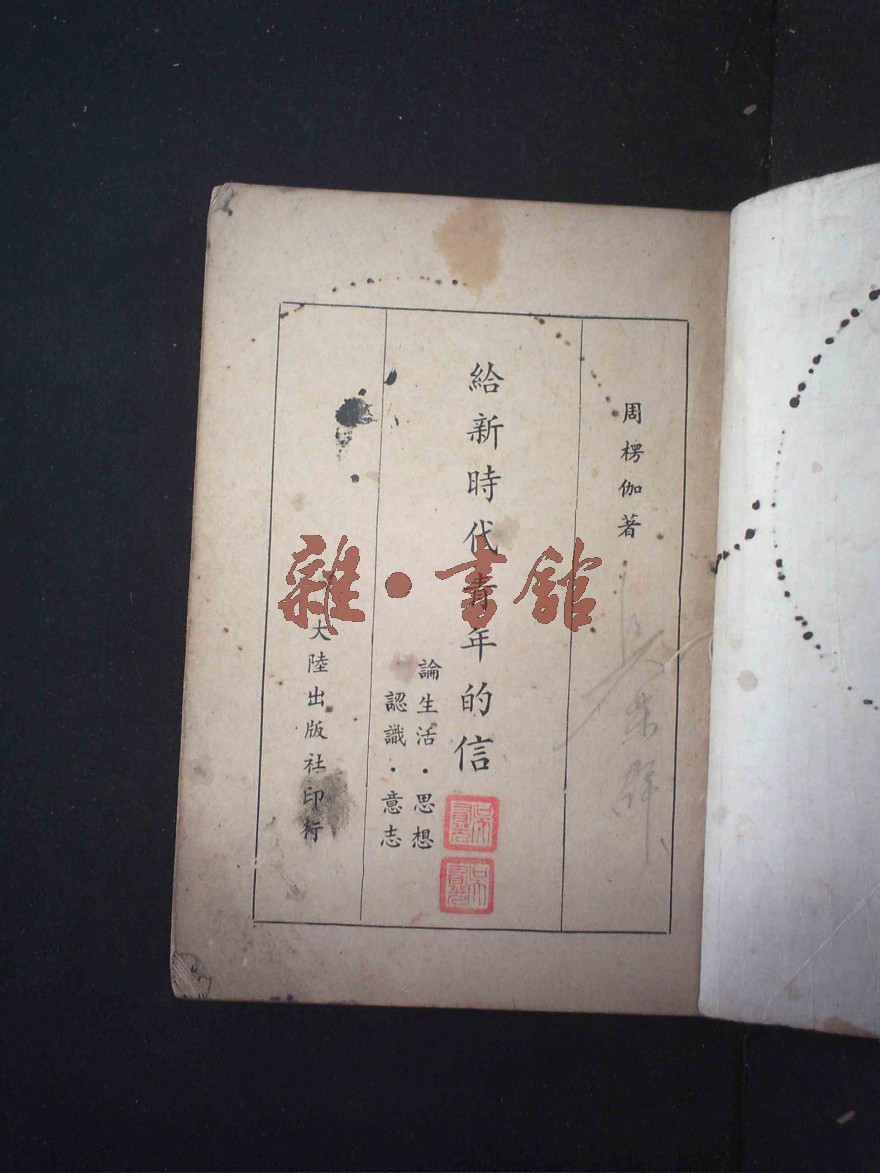 周楞伽著
給新時代青年的信
論生活・思想
認識・意志
大陸出版社印行
雜・書館